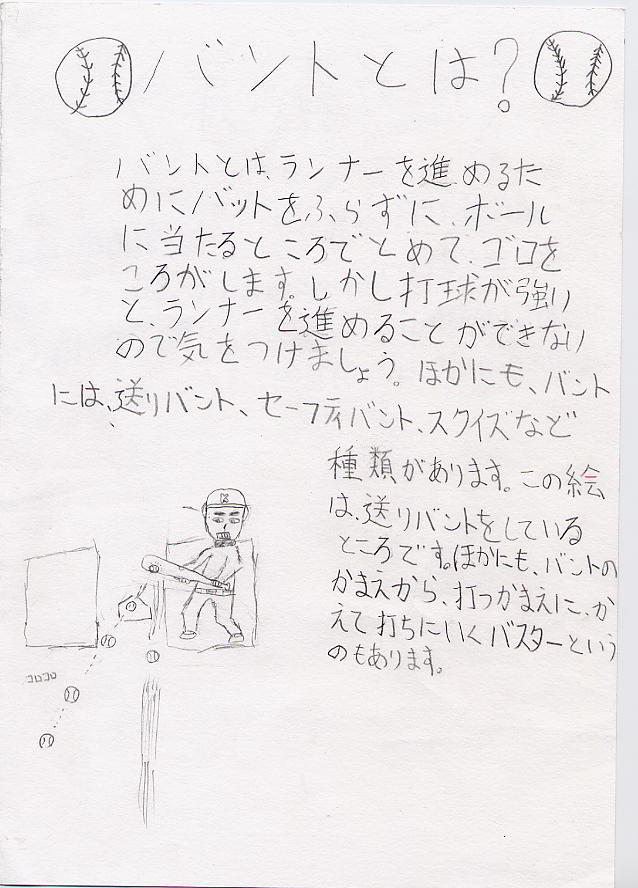 バントとは?
バントとは、ランナーを進めるた
めにバットをふらずに、ボール
に当たるところでとめて、ゴロを
ころがします。しかし打球が強い
と、ランナーを進めることができない
ので気をつけましょう。ほかにも、バント
には、送りバント、セーフティバント、スクイズなど
種類があります。この絵
は、送りバントをしている
ところです。ほかにも、バントの
かまえから、打つかまえに、か
えて打ちにいくバスターという
のもあります。
K
コロコロ